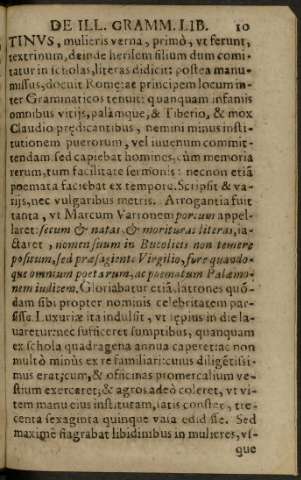 DE ILL. GRAMM. LIB. 10
TINVS, mulieris verna, primò, vt ferunt,
textrinum, deinde herilem filium dum comi-
tatur in scholas, literas didicit: postea manu-
missus, docuit Romæ: ac principem locum in-
ter Grammaticos tenuit: quanquam infamis
omnibus vitijs, palamque, & Tiberio, & mox
Claudio prędicantibus, nemini minus insti-
tutionem puerorum, vel iuuenum commit-
tendam. sed capiebat homines, cùm memoria
rerum, tum facilitate sermonis: necnon etiā
poemata faciebat ex tempore. Scripsit & va-
rijs, nec vulgaribus metris. Arrogantia fuit
tanta, vt Marcum Varronem porcum appel-
laret: secum & natas & morituras literas, ia-
ctaret, nomen suum in Bucolicis non temere
positum, sed præsagiente Virgilio, fore quando-
que omnium poetarum, ac poematum Palæmo-
nem iudicem. Gloriabatur etiā, latrones quō-
dam sibi propter nominis celebritatem par-
sisse. Luxuriæ ita indulsit, vt sępius in die la-
uaretur: nec sufficeret sumptibus, quanquam
ex schola quadragena annua caperet: ac non
multò minùs ex re familiari: cuius diligētissi-
mus erat; cum, & officinas promercalium ve-
stium exerceret; & agros adeò coleret, vt vi-
tem manu eius institutam, satis constet, tre-
centa sexaginta quinque vasa edidisse. Sed
maximè flagrabat libidinibus in mulieres, vs-
que